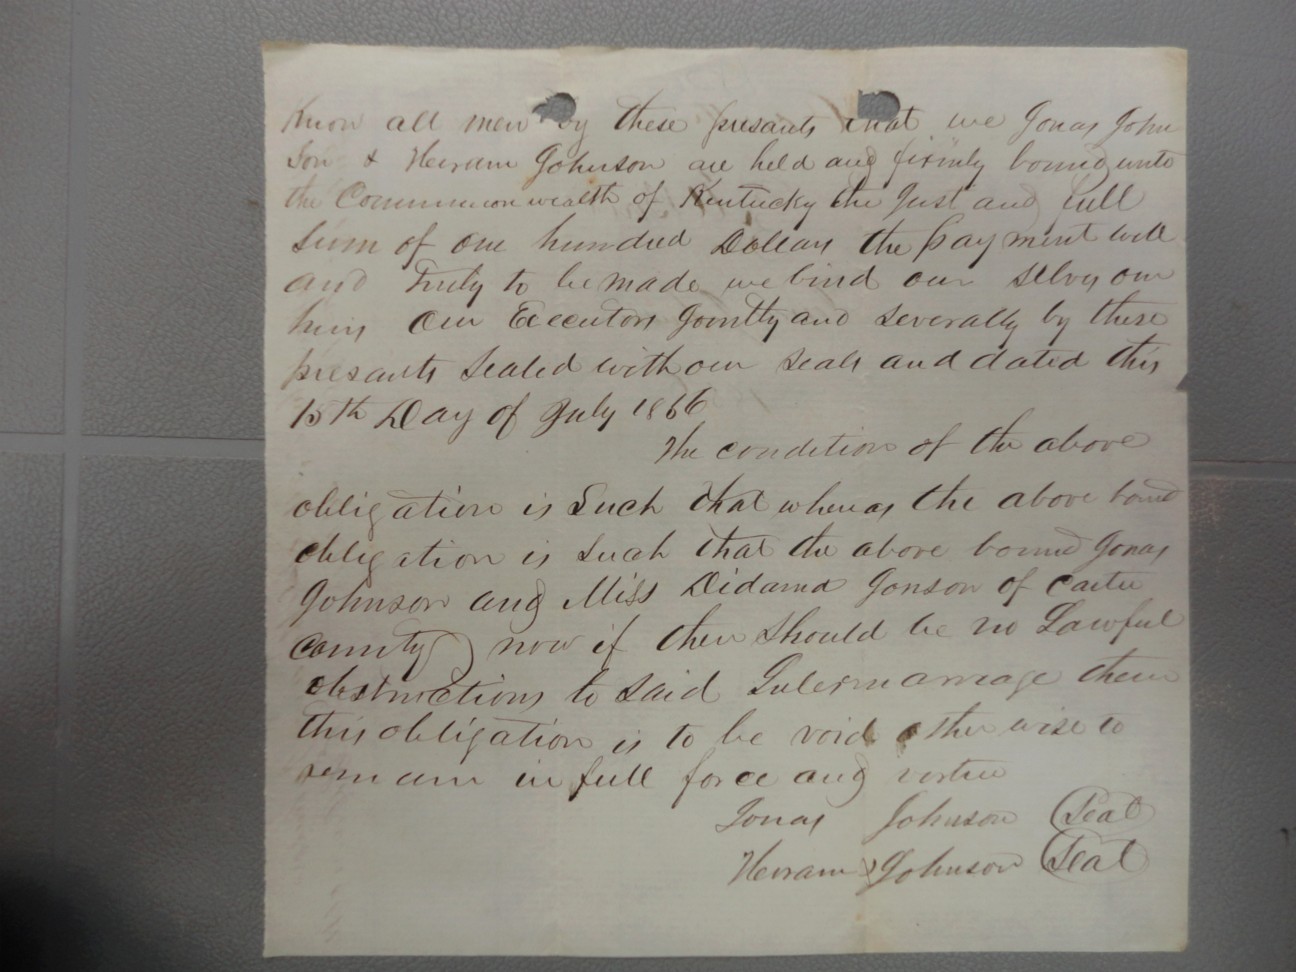 Know all men by these presants that we Jonas John
son & Heiram Johnson are held and firmly bound unto
the Commonwealth of Kentucky the Just and full
Sum of one hundred Dollars the payment well
and Truly to be made we bind our selvs our
heirs our Executors Jointly and severally by these
presants Sealed with our seals and dated this
15th Day of July 1866
The condition of the above
obligation is Such that whereas the above bound
obligation is Such that the above bound Jonas
Johnson and Miss Didama Jonson of Carter
County now if there should be no Lawful
obstructions to said Intermarriage then
this obligation is to be void otherwise to
remain in full force and vertue
Jonas Johnson Seal
Heiram Johnson Seal